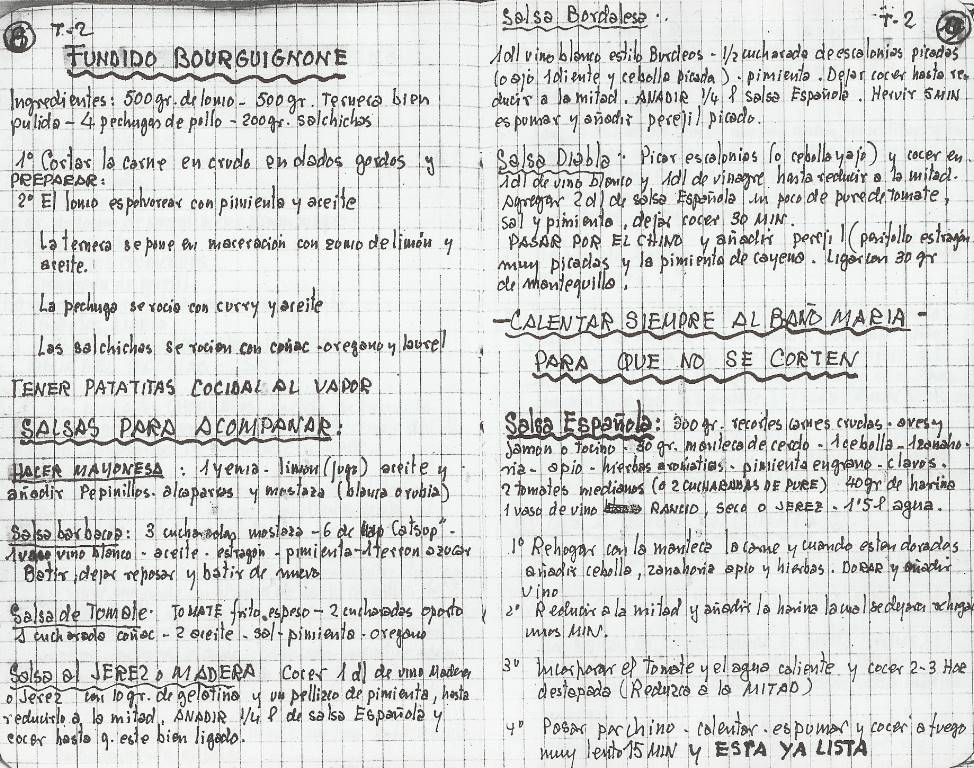 T-2
FUNDIDO BOURGUIGNONE
Ingredientes: 500gr. de lomo - 500gr. Ternera bien
pulida - 4 pechugas de pollo - 200gr. salchichas
1º Cortar la carne en crudo en dados gordos y
PREPARAR:
2º El lomo espolvorear con pimienta y aceite
La ternera se pone en maceración con zumo de limón y
aceite.
La pechuga se rocia con curry y aceite
Las salchichas se rocian con coñac - oregano y laurel
TENER PATATITAS COCIDAS AL VAPOR
SALSAS PARA ACOMPAÑAR:
HACER MAYONESA : 1 yema - limón (jugo) aceite y
añadir Pepinillos - alcaparras y mostaza (blanca o rubia)
Salsa barbacoa: 3 cucharadas mostaza - 6 de "Catsop" -
1 vaso vino blanco - aceite - estragon - pimienta - 1 terron azucar
Batir, dejar reposar y batir de nuevo
Salsa de Tomate. TOMATE frito espeso - 2 cucharadas oporto
1 cucharada coñac - 2 aceite - sal - pimienta - oregano
Salsa al JEREZ o MADERA Cocer 1 dl de vino Madera
o Jerez con 10gr. de gelatina y un pellizco de pimienta, hasta
reducirlo a la mitad. AÑADIR 1/4 l de salsa Española y
cocer hasta q. este bien ligado.
T-2
Salsa Bordalesa..
1dl vino blanco estilo Burdeos - 1/2 cucharada de escalonias picadas
(o ajo 1 diente y cebolla picada) - pimienta. Dejar cocer hasta re
ducir a la mitad. AÑADIR 1/4 l salsa Española. Hervir 5 MIN
espumar y añadir perejil picado.
Salsa Diabla: Picar escalonias (o cebolla y ajo) y cocer en
1dl de vino blanco y 1dl de vinagre hasta reducir a la mitad.
Agregar 2 dl de salsa Española un poco de pure de tomate,
sal y pimienta, dejar cocer 30 MIN.
PASAR POR EL CHINO y añadir perejil (perifollo estragon
muy picadas y la pimienta de cayena. Ligar con 30 gr
de mantequilla.
- CALENTAR SIEMPRE AL BAÑO MARIA -
PARA QUE NO SE CORTEN
Salsa Española: 300gr. recortes carnes crudas - aves y
Jamon o tocino - 30 gr. manteca de cerdo - 1 cebolla - 1 zanaho-
ria - apio - hierbas aromatias - pimienta en grano - clavos.
2 tomates medianos (o 2 CUCHARADAS DE PURE) 40gr de harina
1 vaso de vino RANCIO, SECO o JEREZ - 1'5 l agua.
1º Rehogar con la manteca la carne y cuando esten dorados
añadir cebolla, zanahoria apio y hierbas. DORAR y añadir
vino
2º Reducir a la mitad y añadir la harina la cual se dejara rehogar
unos MIN.
3º Incorporar el tomate y el agua caliente y cocer 2-3 HOR
destapada (Reduzca a la MITAD)
4º Pasar por chino - calentar - espumar y cocer a fuego
muy lento 15 MIN y ESTA YA LISTA